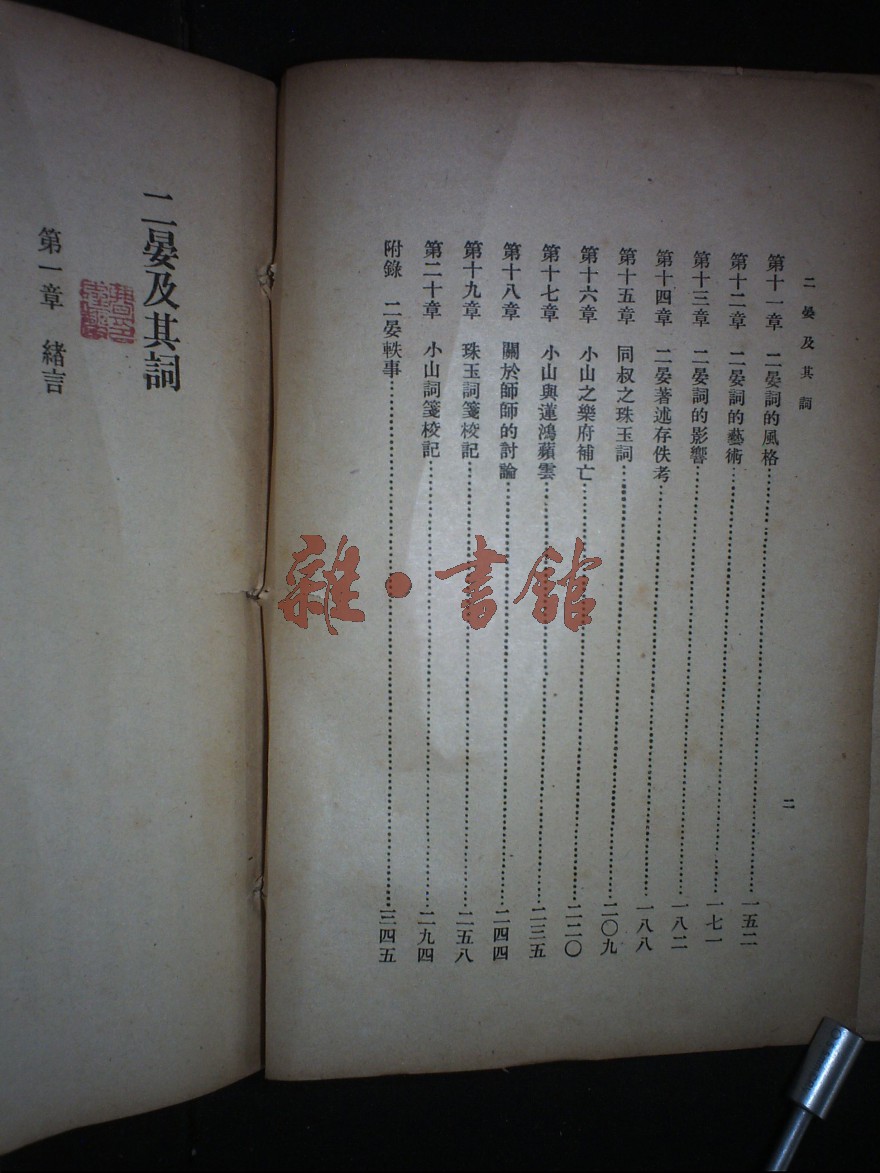 二晏及其詞
第十一章　二晏詞的風格……一五二
第十二章　二晏詞的藝術……一七一
第十三章　二晏詞的影響……一八二
第十四章　二晏著述存佚考……一八八
第十五章　同叔之珠玉詞……二〇九
第十六章　小山之樂府補亡……二二〇
第十七章　小山與蓮鴻蘋雲……二三五
第十八章　關於師師的討論……二四四
第十九章　珠玉詞箋校記……二五八
第二十章　小山詞箋校記……二九四
附錄　二晏軼事……三四五
二
二晏及其詞
第一章　緒言
雜·書館